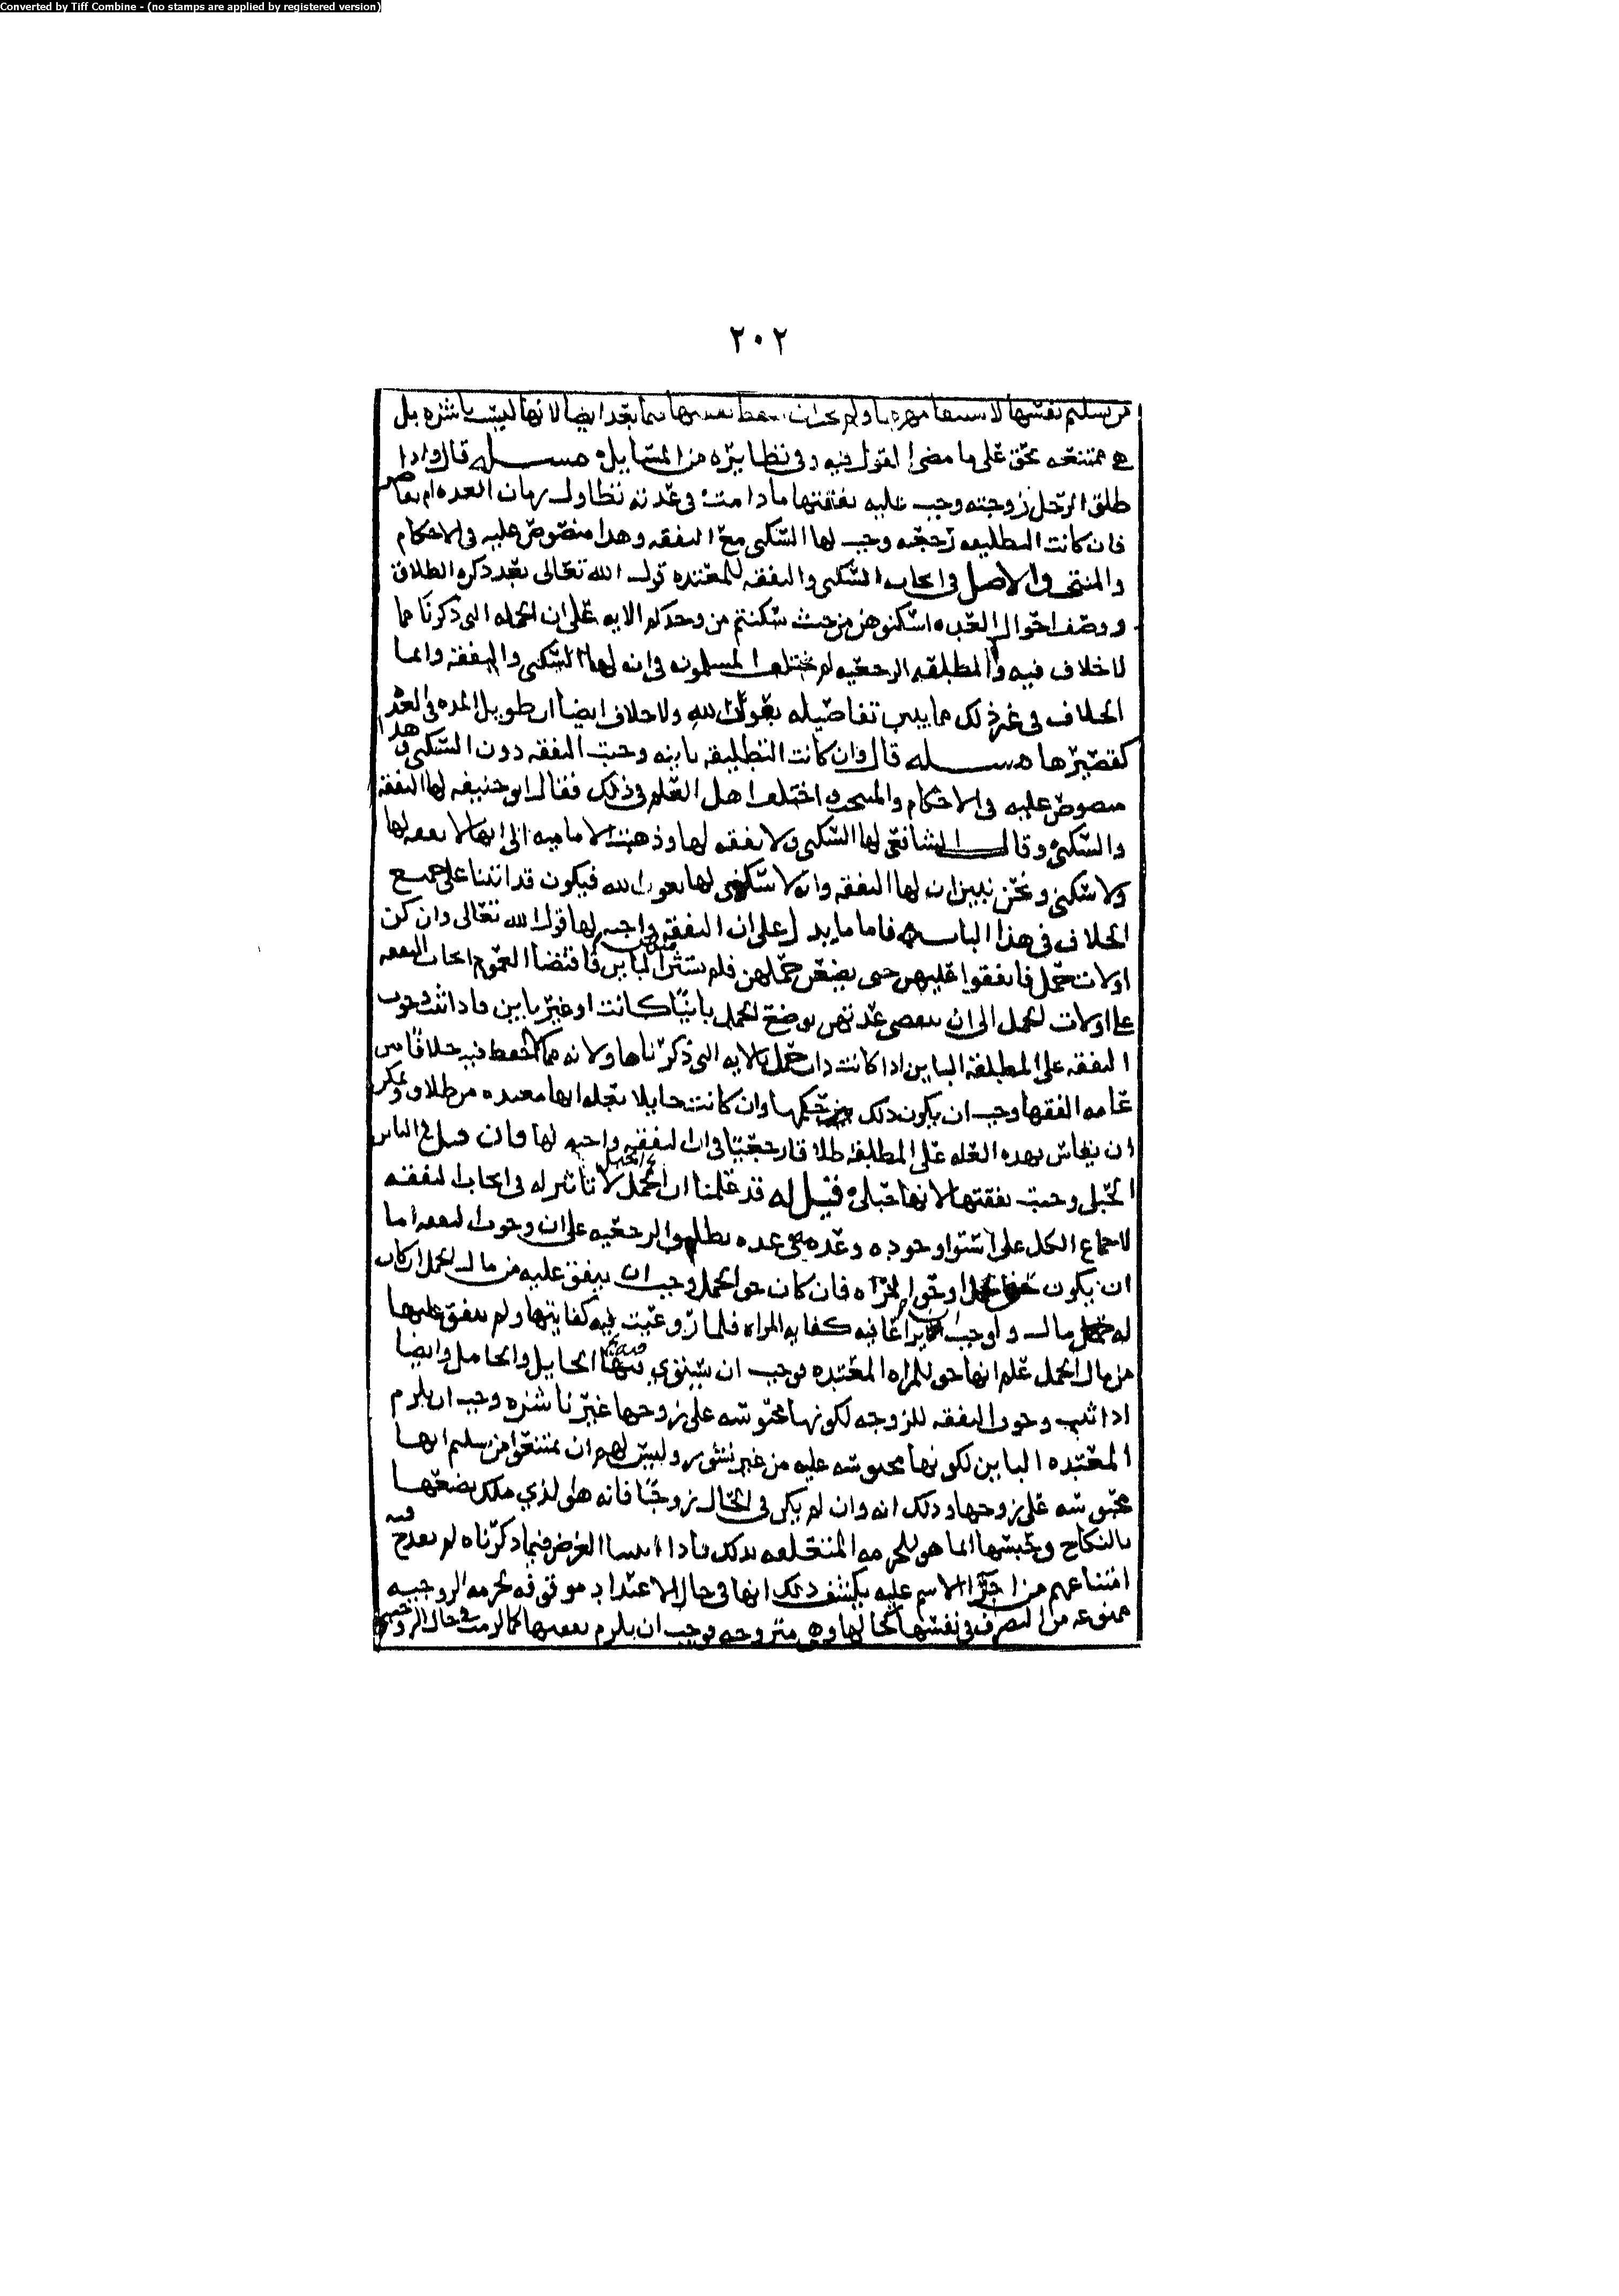 Converted by Tiff Combine - (no stamps are applied by registered version)
٢٠٢
من تسليم نفسها لاستيفا مهرها ولم يجز ان نفقتها فيما بعد ايضا لانها ليست ناشزه بل
هي ممتنعه بحق على ما مضى القول فيه وفي نظايره من المسايل مسله قال واذا
طلق الرجل زوجته وجب عليه نفقتها ما دامت في عدته تطاول زمان العده ام تقاصر
فان كانت التطليقه رجعيه وجب لها السكنى مع النفقه وهذا منصوص عليه في الاحكام
والمنتخب والاصل في ايجاب السكنى والنفقه للمعتده قول الله تعالى بعد ذكره الطلاق
ووصف احوال العده اسكنوهن من حيث سكنتم من وجدكم الايه على ان الجمله التي ذكرنا مما
لا خلاف فيه والمطلقه الرجعيه لم يختلف المسلمون في انه لها السكنى والنفقه وانما
الخلاف في غير ذلك مما يبين تفاصيله بعون الله ولا خلاف ايضا ان طويل المده في العده
كقصيرها مسله قال وان كانت التطليقه باينه وجبت النفقه دون السكنى وهذا
منصوص عليه في الاحكام والمنتخب واختلف اهل العلم في ذلك فقال ابو حنيفه لها النفقه
والسكنى وقال الشافعي لها السكنى ولا نفقه لها وذهبت الاماميه الى انها لا نفقه لها
ولا سكنى ونحن نبين ان لها النفقه وانه لا سكنى لها بعون الله فيكون قد اتينا على جميع
الخلاف في هذا الباب فاما ما يدل على ان النفقه واجبه لها قول الله تعالى وان كن
اولات حمل فانفقوا عليهن حتى يضعن حملهن فلم يستثن الباين من فاقتضا العموم ايجاب النفقه
على اولات الحمل الى ان تنقضي عدتهن بوضع الحمل باينا كانت او غير باين فاذا ثبت وجوب
النفقه على المطلقه الباين اذا كانت ذات حمل بالايه التي ذكرناها ولانه مما لا نحفظ فيه خلافا من
عامه الفقها وجب ان يكون ذلك حكمها وان كانت حايلا بعله انها معتده من طلاق ويمكن
ان يقاس بهذه العله على المطلقه طلاقا رجعيا في ان النفقه واجبه لها فان قيل في الباين
الحبلى وجبت نفقتها لانها حبلى قيل له قد علمنا ان الحمل لا تاثير له في ايجاب النفقه
لاجماع الكل على استوا وجوده وعدمه في عده تطليق الرجعيه على ان وجوب النفقه اما
ان يكون حق الحمل او حق المراه فان كان حق الحمل وجب ان ينفق عليه من مال الحمل ان كان
له مال ولوجب ان يراعا فيه كفايه المراه فلما روعيت فيه كفايتها ولم ينفق عليها
من مال الحمل علم انها حق للمراه المعتده فوجب ان يستوي فيها الحايل والحامل وايضا
اذا ثبت وجوب النفقه للزوجه لكونها محبوسه على زوجها غير ناشزه وجب ان يلزم
المعتده الباين لكونها محبوسه عليه من غير نشوز وليس لهم ان يمتنعوا من تسليم انها
محبوسه على زوجها وذلك انه وان لم يكن في الحال زوجا فانه هو الذي ملك بضعها
بالنكاح وحبسها انما هو للحرمه المتعلقه بذلك فاذا الغرض فيما ذكرناه لم يقدح فيه
امتناعهم من اجرا الاسم عليه يكشف ذلك انها في حال الاعتداد موقوفه لحرمه الزوجيه
ممنوعه من التصرف في نفسها كحالها وهي متزوجه فوجب ان يلزم نفقتها كما لزمت في حال الزوجيه